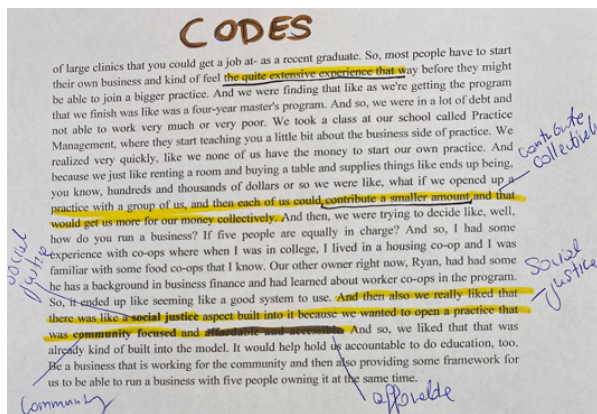 CODES
of large clinics that you could get a job at- as a recent graduate. So, most people have to start
their own business and kind of feel the quite extensive experience that way before they might
be able to join a bigger practice. And we were finding that like as we're getting the program
that we finish was like was a four-year master's program. And so, we were in a lot of debt and
not able to work very much or very poor. We took a class at our school called Practice
Management, where they start teaching you a little bit about the business side of practice. We
realized very quickly, like we none of us have the money to start our own practice. And
because we just like renting a room and buying a table and supplies things like ends up being,
you know, hundreds and thousands of dollars or so we were like, what if we opened up a
practice with a group of us, and then each of us could contribute a smaller amount and that
would get us more for our money collectively. And then, we were trying to decide like, well,
how do you run a business? If five people are equally in charge? And so, I had some
experience with co-ops where when I was in college, I lived in a housing co-op and I was
familiar with some food co-ops that I know. Our other owner right now, Ryan, had had some
he has a background in business finance and had learned about worker co-ops in the program.
So, it ended up like seeming like a good system to use. And then also we really liked that
there was like a social justice aspect built into it because we wanted to open a practice that
was community focused and affordable and accessible And so, we liked that that was
already kind of built into the model. It would help hold us accountable to do education, too.
Be a business that is working for the community and then also providing some framework for
us to be able to run a business with five people owning it at the same time.
contribute
collectively
social
justice
social
justice
community
afforable